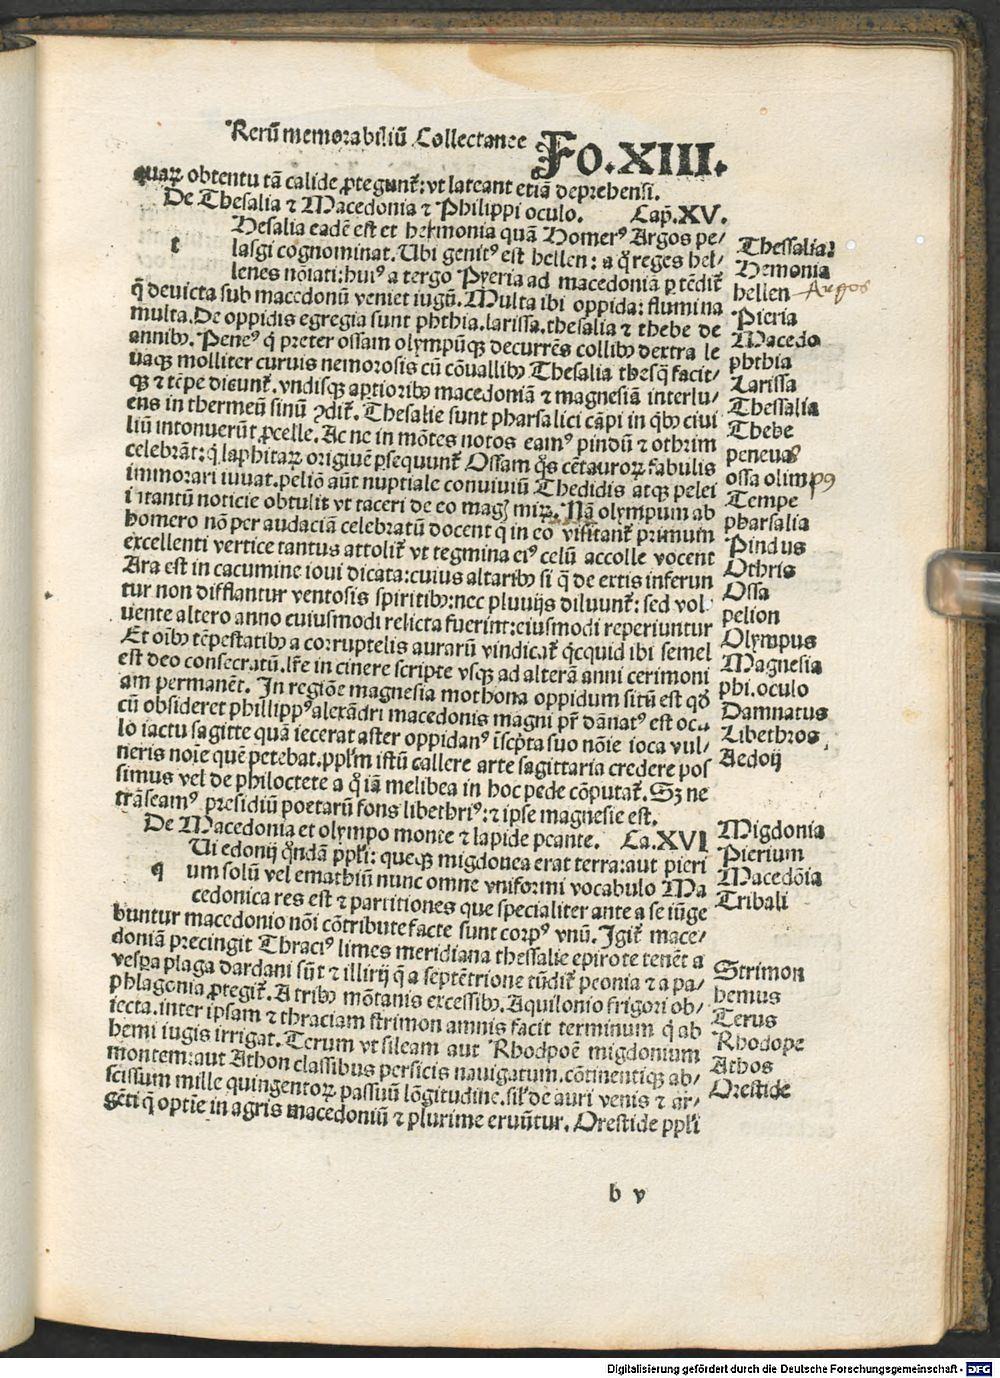 Rerū memorabiliū Collectanee Fo.XIII.
quaꝝ obtentu tā calide ꝓtegunt̄: vt lateant etiā deprehensi.
De Thesalia ⁊ Macedonia ⁊ Philippi oculo. Cap̄.XV.
t Hesalia eadē est et hemonia quā Homerꝰ Argos pe/
lasgi cognominat. Ubi genitꝰ est hellen: a q̊ reges hel/
lenes nōiati: huiꝰ a tergo Pyeria ad macedoniā p̱tēdit̄
q̄ deuicta sub macedonū veniet iugū. Multa ibi oppida: flumina
multa. De oppidis egregia sunt phthia. larissa. thesalia ⁊ thebe de
annibꝫ. Peneꝰ q̇ preter ossam olympūqꝫ decurrēs collibꝫ dextra le
uaqꝫ molliter curuis nemorosis cū cōuallibꝫ Thesalia thesq̄ facit/
qꝫ ⁊ tēpe dicunt̄. vndisqꝫ aptioribꝫ macedoniā ⁊ magnesiā interlu/
ens in thermeū sinū ꝯdit̄. Thesalie sunt pharsalici cāpi in q̇bꝫ ciui
liū intonuerūt ꝓcelle. Ac ne in mōtes notos eamꝰ pindū ⁊ othrim
celebrāt: q̇ laphitaꝝ originē ꝑsequunt̄ Ossam q̊s cētauroꝝ fabulis
immorari iuuat. peliō aūt nuptiale conuiuiū Thedidis atqꝫ pelei
i ntantū noticie obtulit vt taceri de eo mag̱ miꝝ. Nā olympum ab
homero nō per audaciā celebratū docent q̄ in eo visitant̄ primum
excellenti vertice tantus attolit̄ vt tegmina eiꝰ celū accolle vocent
Ara est in cacumine ioui dicata: cuius altaribꝫ si q̄ de extis inferun
tur non difflantur ventosis spiritibꝫ: nec pluuijs diluunt̄: sed vol
uente altero anno cuiusmodi relicta fuerint: eiusmodi reperiuntur
Et oībꝫ tēpestatibꝫ a corruptelis auraru vindicat̄ q̇cquid ibi semel
est deo consecratū. lr̄e in cinere scripte vsqꝫ ad alterā anni cerimoni
am permanēt. In regiōe magnesia mothona oppidum sitū est qd̊
cū obsideret phillippꝰ alexādri macedonis magni pr̄ dānatꝰ est ocu
lo iactu sagitte quā iecerat aster oppidanꝰ īscꝑta suo nōie ioca vul/
neris noīe quē petebat. ppl̄m istū callere arte sagittaria credere pos
simus vel de philoctete a q̊ iā melibea in hoc pede cōputat̄. Sꝫ ne
trāseamꝰ presidiū poetarū fons libethriꝰ: ⁊ ipse magnesie est.
De Macedonia et olympo monte ⁊ lapide pcante. Ca.XVI
q Ui edonij q̊ndā ppl̄i: queqꝫ migdonea erat terra: aut pieri
um solū vel emathiū nunc omne vniformi vocabulo Ma
cedonica res est ⁊ partitiones que specialiter ante a se iūge
buntur macedonio nōi cōtribute facte sunt corpꝰ vnū. Igit̄ mace/
doniā precingit Thraciꝰ limes meridiana thessalie epirote tenēt a
vesꝑa plaga dardani sūt ⁊ illirij q̄ a septētrione tūdit̄ peonia ⁊ a pa/
phlagonia ꝓtegit̄. A tribꝫ mōtanis excessibꝫ. Aquilonio frigori ob/
iecta. inter ipsam ⁊ thraciam strimon amnis facit terminum q̇ ab
hemi iugis irrigat. Terum vt sileam aut Rhodpoē migdonium
montem: aut Athon classibus persicis nauigatum. cōtinentiqꝫ ab/
scissum mille quingentoꝝ passuū lōgitudine. sil̄ de auri venis ⁊ ar/
gēti q̄ optīe in agris macedoniū ⁊ plurime eruūtur. Orestide ppl̄i
Thessalia.
Hemonia
hellen Argos
Pieria
Macedo
phthia
Larissa
Thessalia
Thebe
peneuaꝰ
ossa olimpꝰ
Tempe
pharsalia
Pindus
Othris
Ossa
pelion
Olympus
Magnesia
phi.oculo
Damnatus
Libethros
Aedoij
Migdonia
Pierium
Macedōia
Tribali
Strimon
hemus
Terus
Rhodope
Athos
Orestide
b v
Digitalisierung gefördert durch die Deutsche Forschungsgemeinschaft - DFG